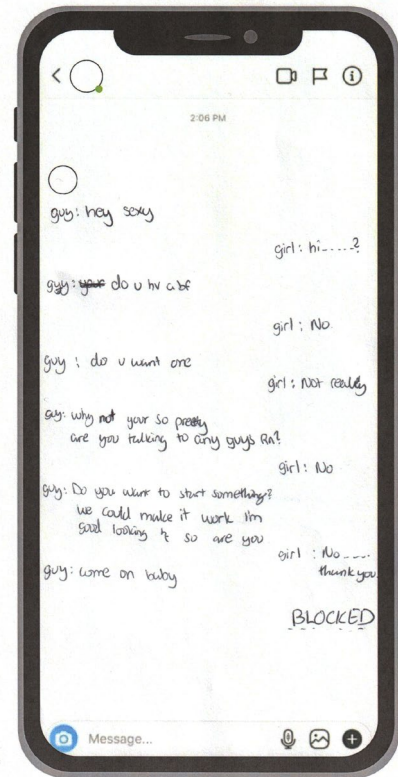 2:06 PM
guy: hey sexy
girl: hi.....?
guy: your do u hv a bf
girl: No.
guy: do u want one
girl: Not really
guy: why not your so pretty
are you talking to any guys Rn?
girl: No
guy: Do you want to start something?
we could make it work I'm
good looking & so are you
girl: No....
thank you
guy: come on baby
BLOCKED
Message...